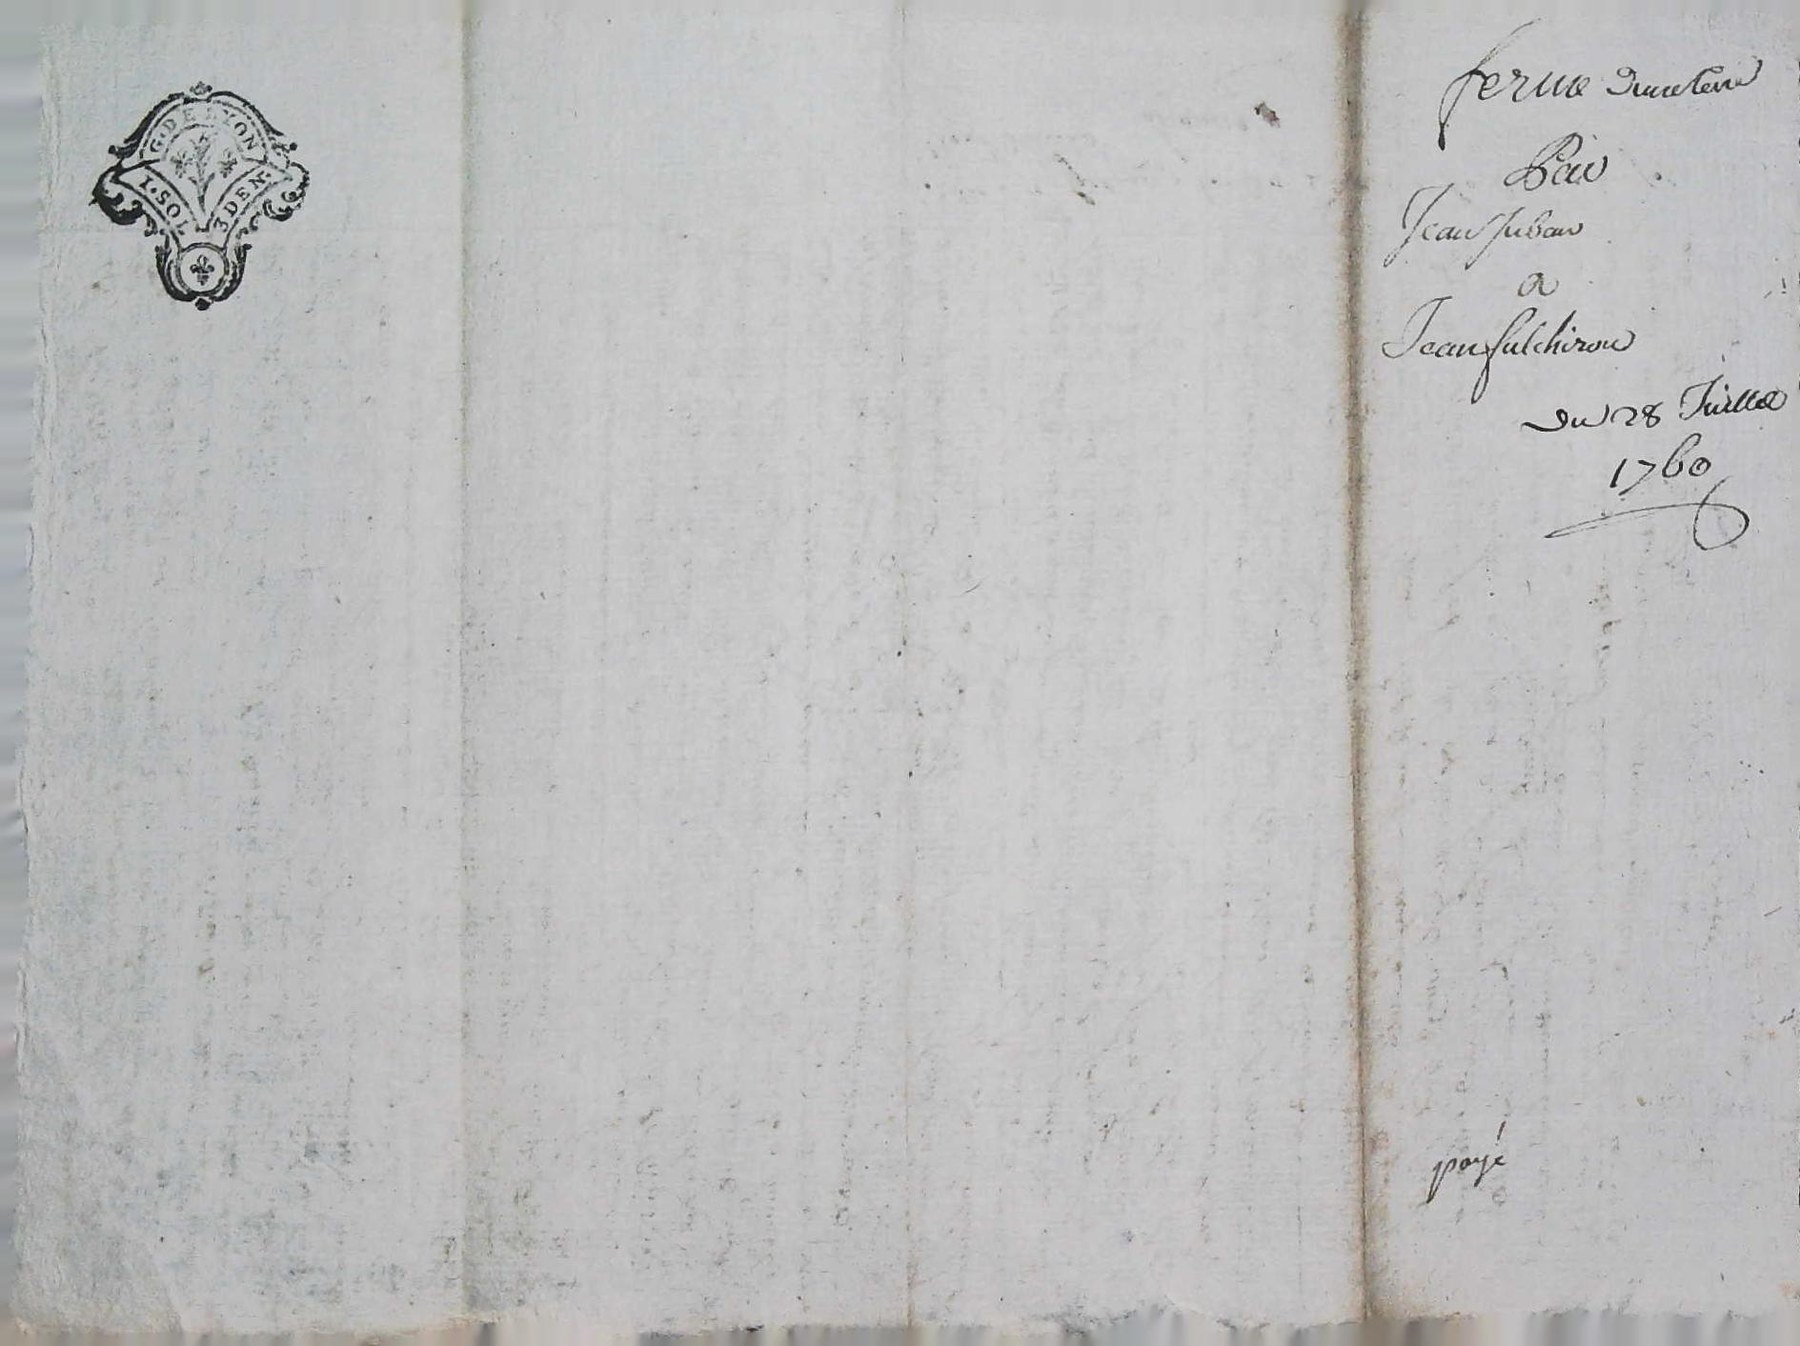 G. DE LYON
1. SOL 3 DEN.
ferme d'une terre
Par
Jean Juban
a
Jean fulchiron
du 28 Juillet
1760
payé